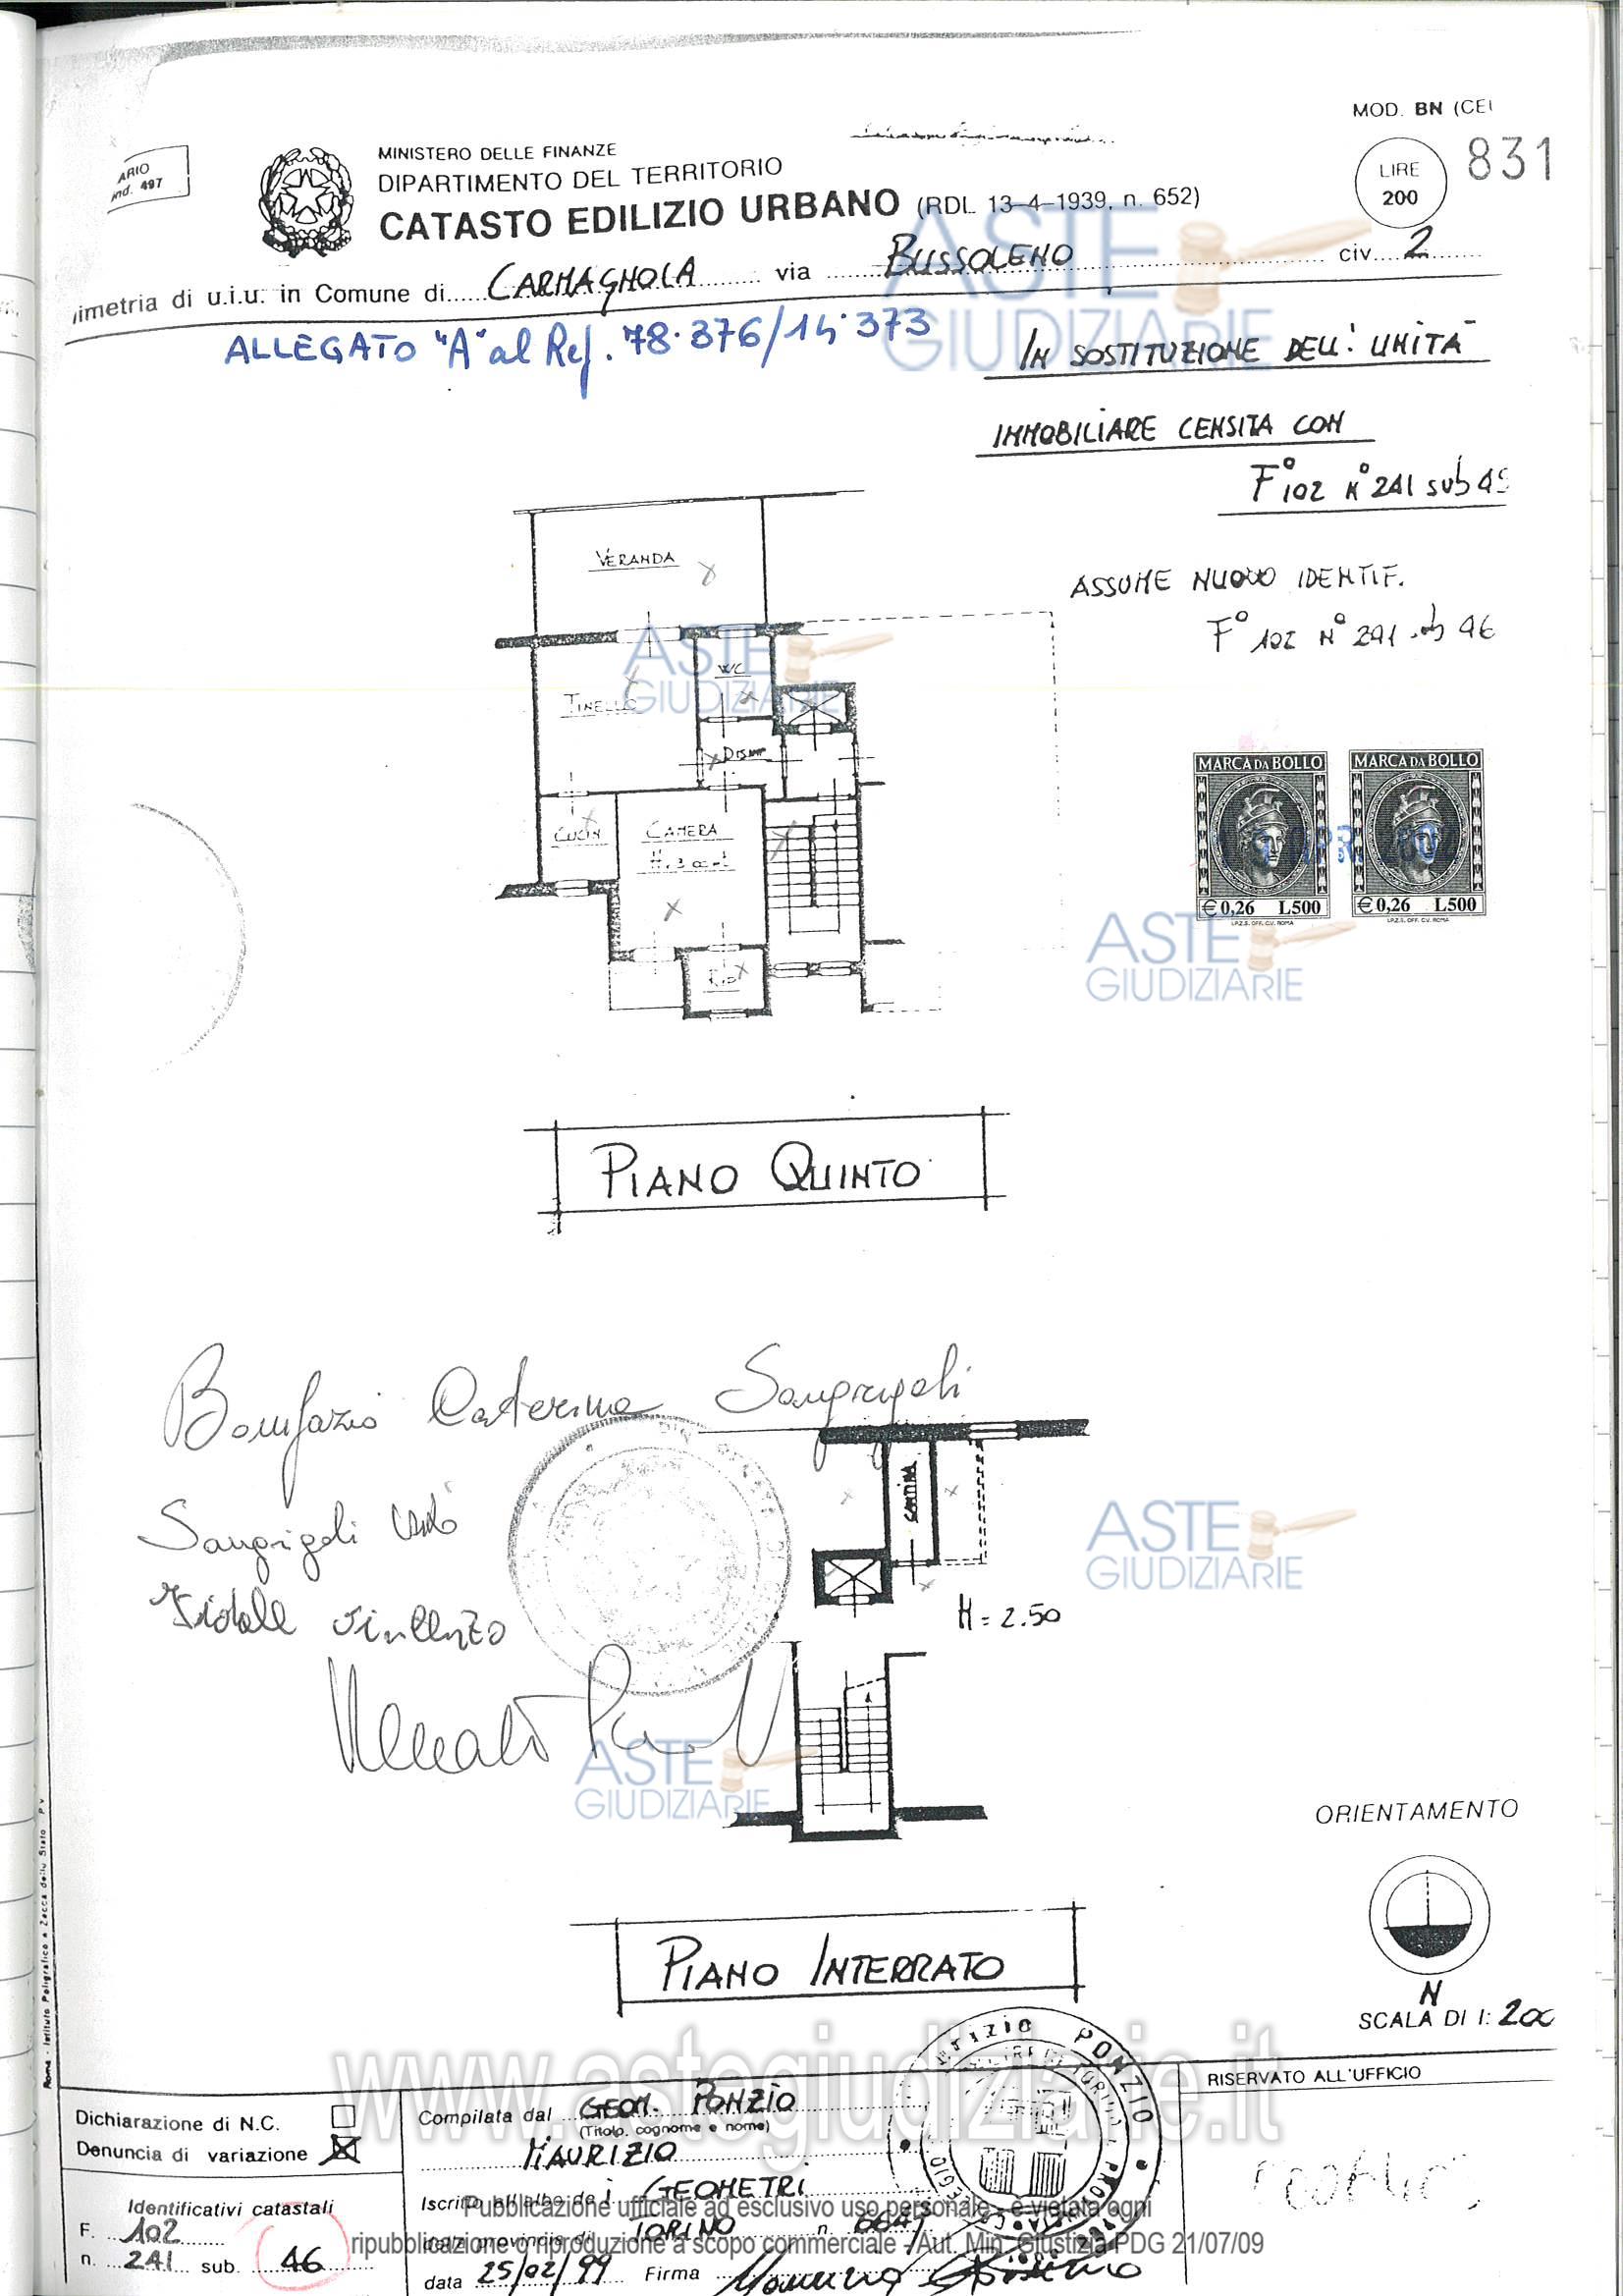 MOD. BN (CEU
ARIO
ind. 497
MINISTERO DELLE FINANZE
DIPARTIMENTO DEL TERRITORIO
CATASTO EDILIZIO URBANO (RDL 13-4-1939, n. 652)
LIRE
200
831
imetria di u.i.u. in Comune di CARMAGNOLA via BUSSOLENO civ. 2
ALLEGATO "A" al Rep. 78.376/14.373
IN SOSTITUZIONE DELL' UNITA'
IMMOBILIARE CENSITA CON
F° 102 N° 241 sub 45
ASSUME NUOVO IDENTIF.
F° 102 N° 241 sub 46
VERANDA
WC
TINELLO
DISIMP
CUCIN
CAMERA
RIP
MARCA DA BOLLO
MARCA DA BOLLO
€ 0,26 L500
€ 0,26 L500
I.P.Z.S. OFF. C.V. ROMA
I.P.Z.S. OFF. C.V. ROMA
ASTE
GIUDIZIARIE
ASTE
GIUDIZIARIE
ASTE
GIUDIZIARIE
PIANO QUINTO
Bonifazio Caterina Sangrigoli
Sangrigoli Vito
Vidale Vincenzo
CANTINA
H = 2.50
ASTE
GIUDIZIARIE
ASTE
GIUDIZIARIE
PIANO INTERRATO
ORIENTAMENTO
N
SCALA DI 1: 200
Roma - Istituto Poligrafico e Zecca dello Stato P.V.
www.astegiudiziarie.it
Dichiarazione di N.C.
Denuncia di variazione
Identificativi catastali
F. 102
n. 241 sub. 46
Compilata dal GEOM. PONZIO
(Titolo, cognome e nome)
MAURIZIO
Iscritto all'albo dei GEOMETRI
della provincia di TORINO n. 6647
data 25/02/99 Firma
RISERVATO ALL'UFFICIO
Pubblicazione ufficiale ad esclusivo uso personale - è vietata ogni
ripubblicazione o riproduzione a scopo commerciale - Aut. Min. Giustizia PDG 21/07/09